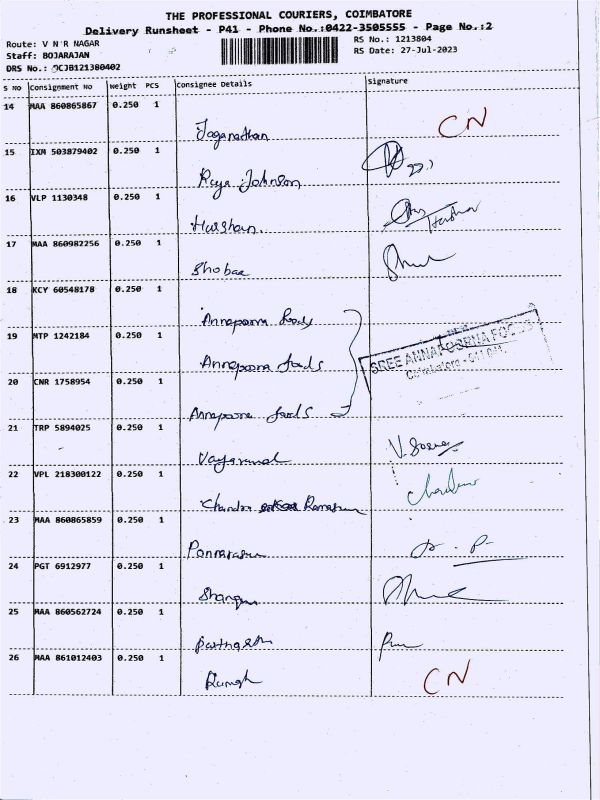 THE PROFESSIONAL COURIERS, COIMBATORE
Delivery Runsheet - P41 - Phone No.:0422-3505555 - Page No.:2
Route: V N R NAGAR RS No.: 1213804
Staff: BOJARAJAN RS Date: 27-Jul-2023
DRS No.: CJB121380402
S No Consignment No Weight PCS Consignee Details Signature
14 MAA 860865867 0.250 1
Jaganathan CN
15 IXM 503879402 0.250 1
Raja Johnson
16 VLP 1130348 0.250 1
Harshan
17 MAA 860982256 0.250 1
Shobaa
18 KCY 60548178 0.250 1
Annapoorna foods
19 MTP 1242184 0.250 1
Annapoorna foods SREE ANNAPOORNA FOODS
Coimbatore - 641 041.
20 CNR 1758954 0.250 1
Annapoorna foods
21 TRP 5894025 0.250 1
22 VPL 218300122 0.250 1
Chandra
23 MAA 860865859 0.250 1
24 PGT 6912977 0.250 1
25 MAA 860562724 0.250 1
26 MAA 861012403 0.250 1
CN